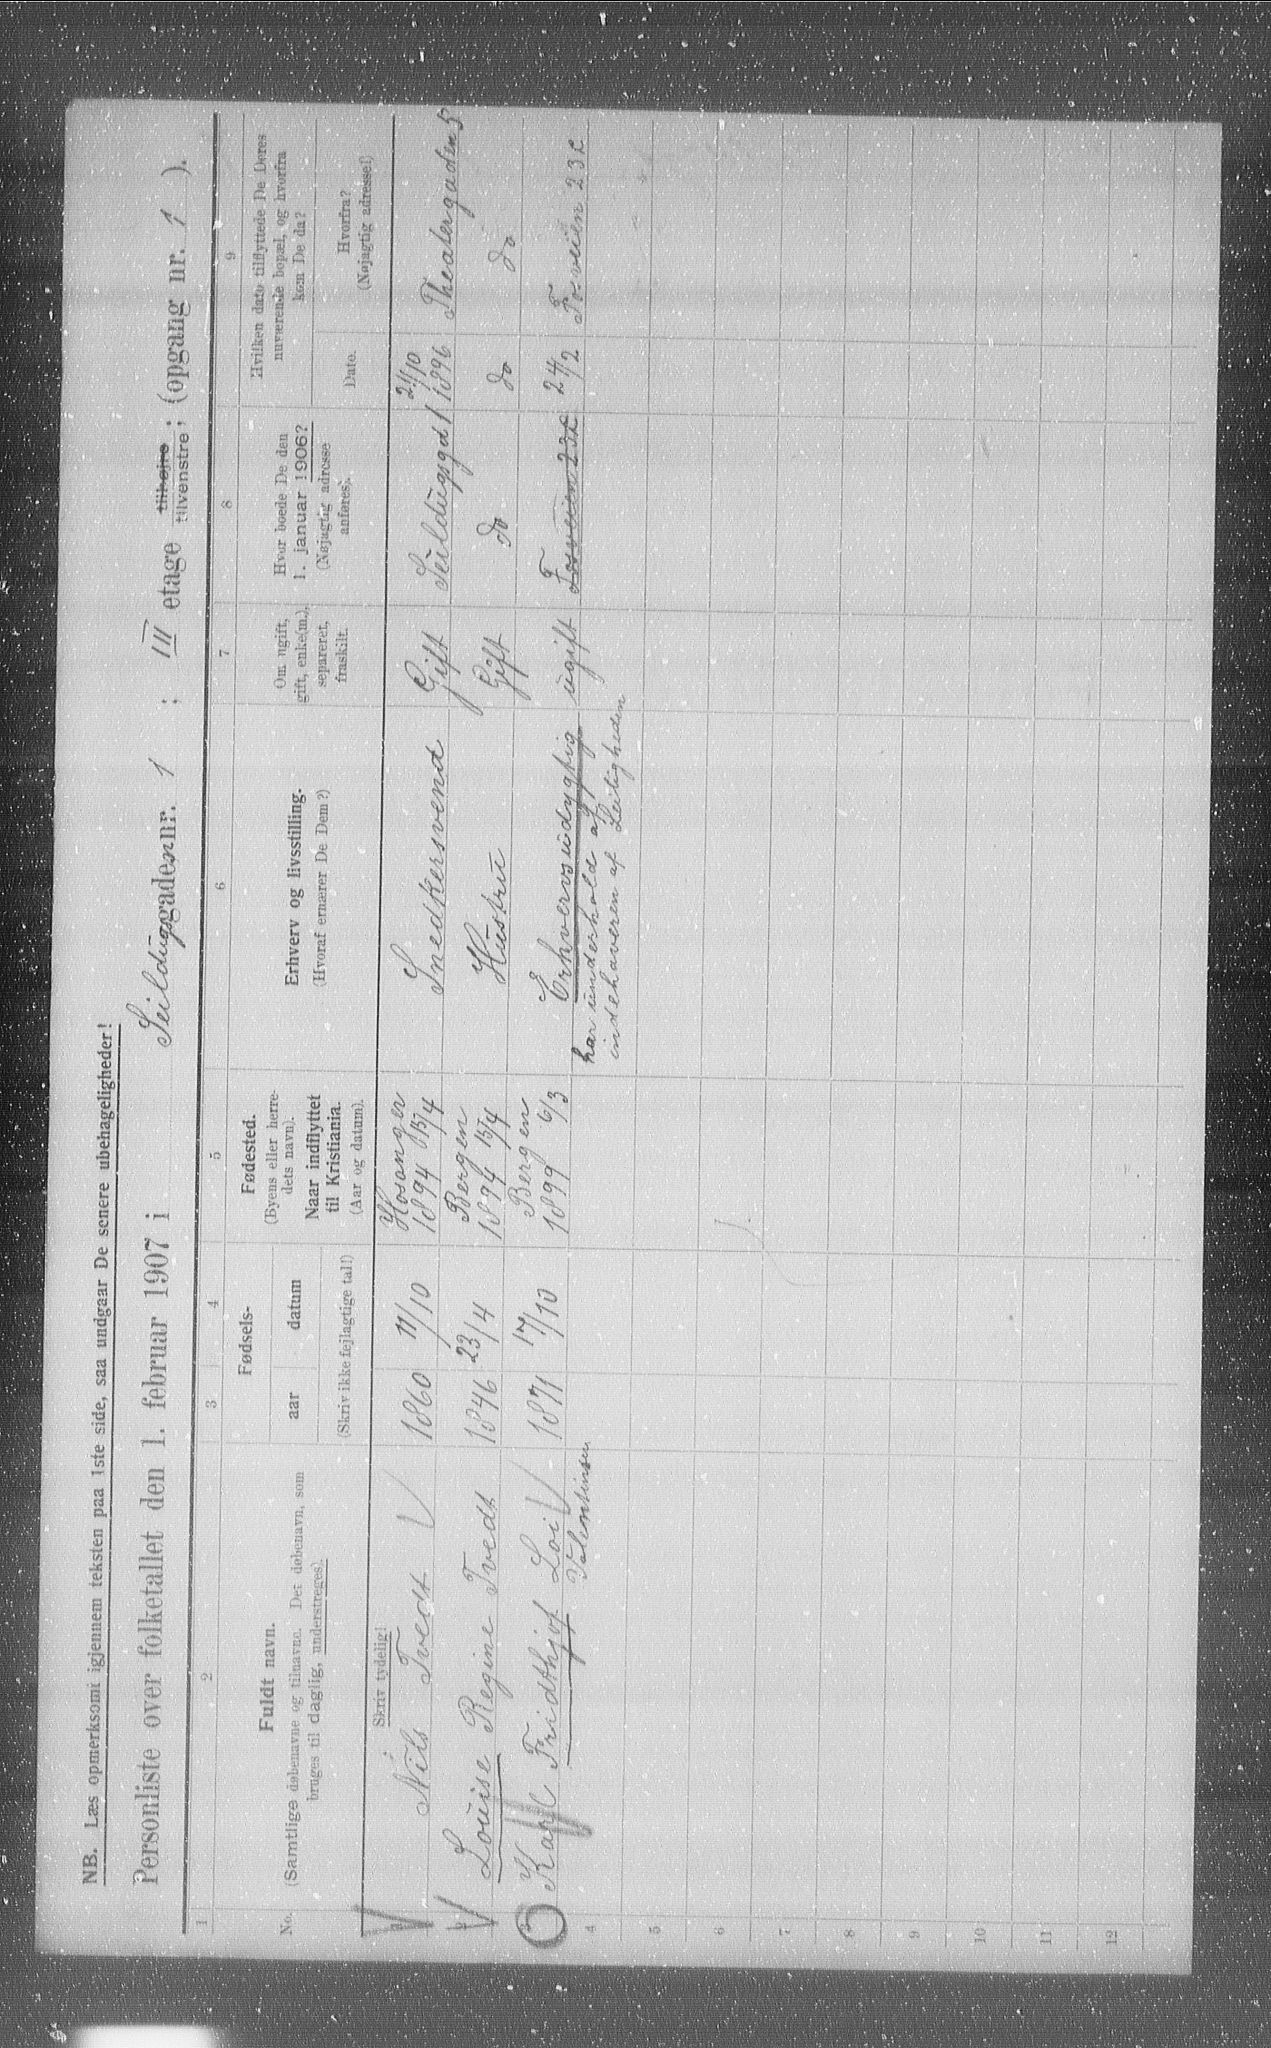 NB. Læs opmerksomt igjennem teksten paa 1ste side, saa undgaar De senere ubehageligheder!
Personliste over folketallet den 1. februar 1907 i Seildugsgaden nr. 1 ; III etage tilhøjre tilvenstre; (opgang nr. 1 ).
1 2 3 4 5 6 7 8 9
No.
Fuldt navn.
(Samtlige døbenavne og tilnavne. Det døbenavn, som
bruges til daglig, understreges).
Fødsels-
aar datum
(Skriv ikke fejlagtige tal!)
Fødested.
(Byens eller herre-
dets navn).
Naar indflyttet
til Kristiania.
(Aar og datum).
Erhverv og livsstilling.
(Hvoraf ernærer De Dem?)
Om ugift,
gift, enke(m.),
separeret,
fraskilt.
Hvor boede De den
1. januar 1906?
(Nøjagtig adresse
anføres).
Hvilken dato tilflyttede De Deres
nuværende bopæl, og hvorfra
kom De da?
Dato.
Hvorfra?
(Nøjagtig adresse!)
Skriv tydelig!
Nils Tvedt 1860 11/10 Hosanger 1894 15/4 Snedkersvend Gift Seildugsgd 1 21/10 1896 Theatergaden 5
Louise Regine Tvedt 1846 23/4 Bergen 1894 15/4 Hustru Gift do do do
Karl Fridthjof Loi Valentinsen 1871 17/10 Bergen 1899 6/3 Erhvervsudygtig ugift Fosveien 23c 24/2 Fosveien 23c
har underhold af
indehaveren af Leiligheden
4
5
6
7
8
9
10
11
12